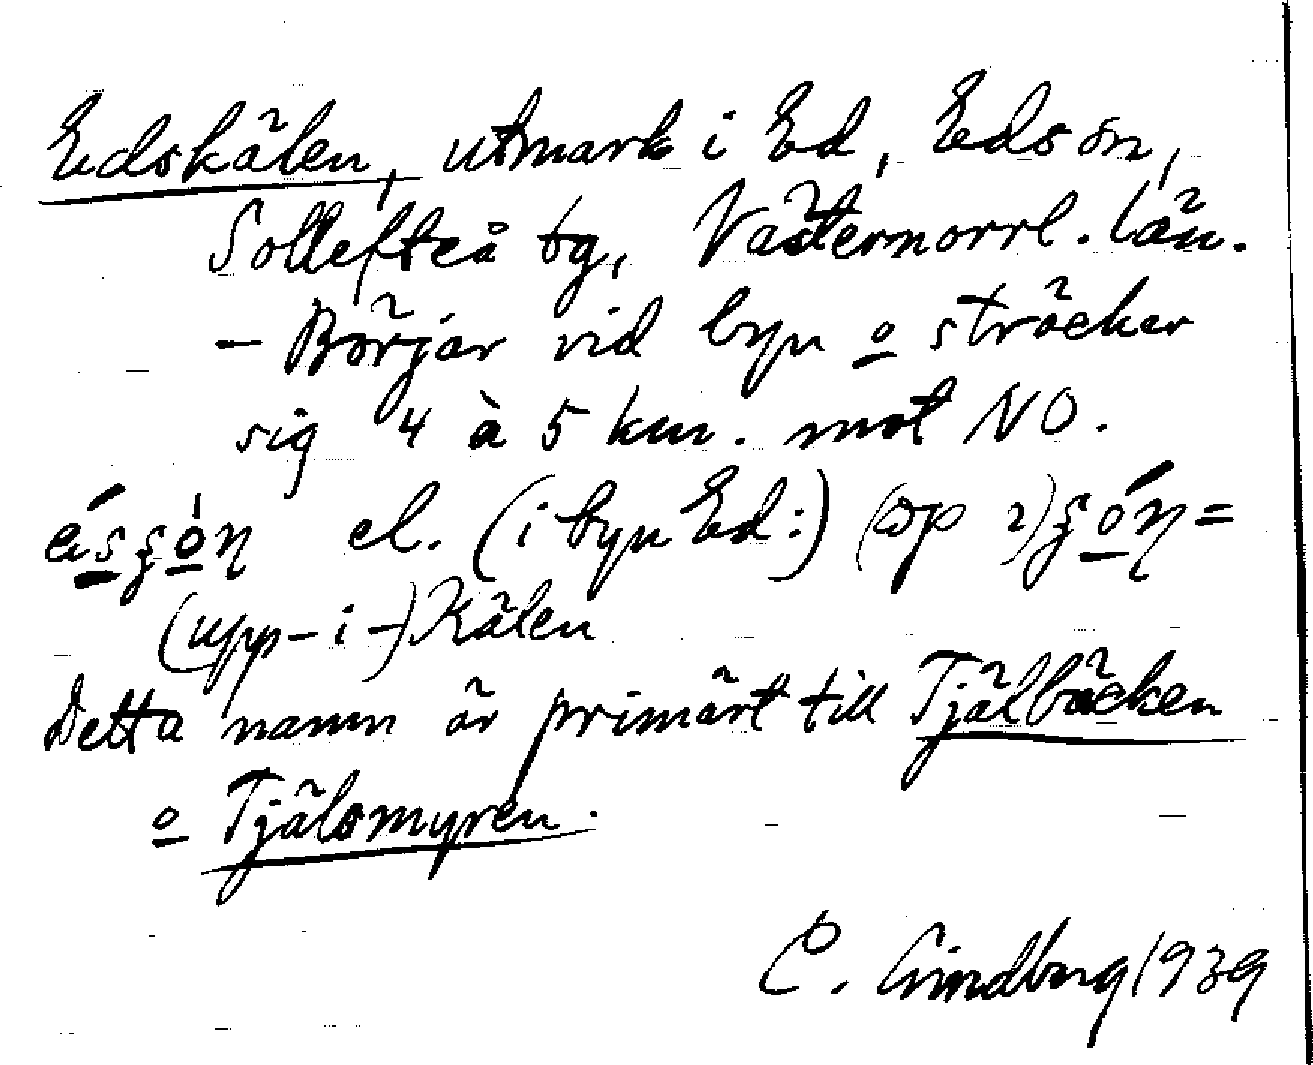 Edskälen, utmark i Ed, Eds sn,
Sollefteå tg, Västernorrl. län.
- Börjar vid byn o sträcker
sig 4 à 5 km. mot NO.
el. (i byn Ed:)
(upp-i-)Kälen
Detta namn är primärt till Tjälbäcken
o Tjälsmyren.
C. Lindberg 1939